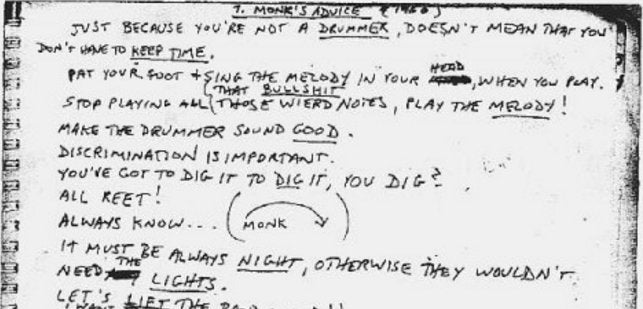 T. MONK'S ADVICE (1960)
JUST BECAUSE YOU'RE NOT A DRUMMER, DOESN'T MEAN THAT YOU
DON'T HAVE TO KEEP TIME.
PAT YOUR FOOT + SING THE MELODY IN YOUR HEAD, WHEN YOU PLAY.
STOP PLAYING ALL (THAT BULLSHIT
THOSE WIERD NOTES, PLAY THE MELODY!
MAKE THE DRUMMER SOUND GOOD.
DISCRIMINATION IS IMPORTANT.
YOU'VE GOT TO DIG IT TO DIG IT, YOU DIG?
ALL REET!
ALWAYS KNOW... (MONK)
IT MUST BE ALWAYS NIGHT, OTHERWISE THEY WOULDN'T
NEED THE LIGHTS.
LET'S LIFT THE